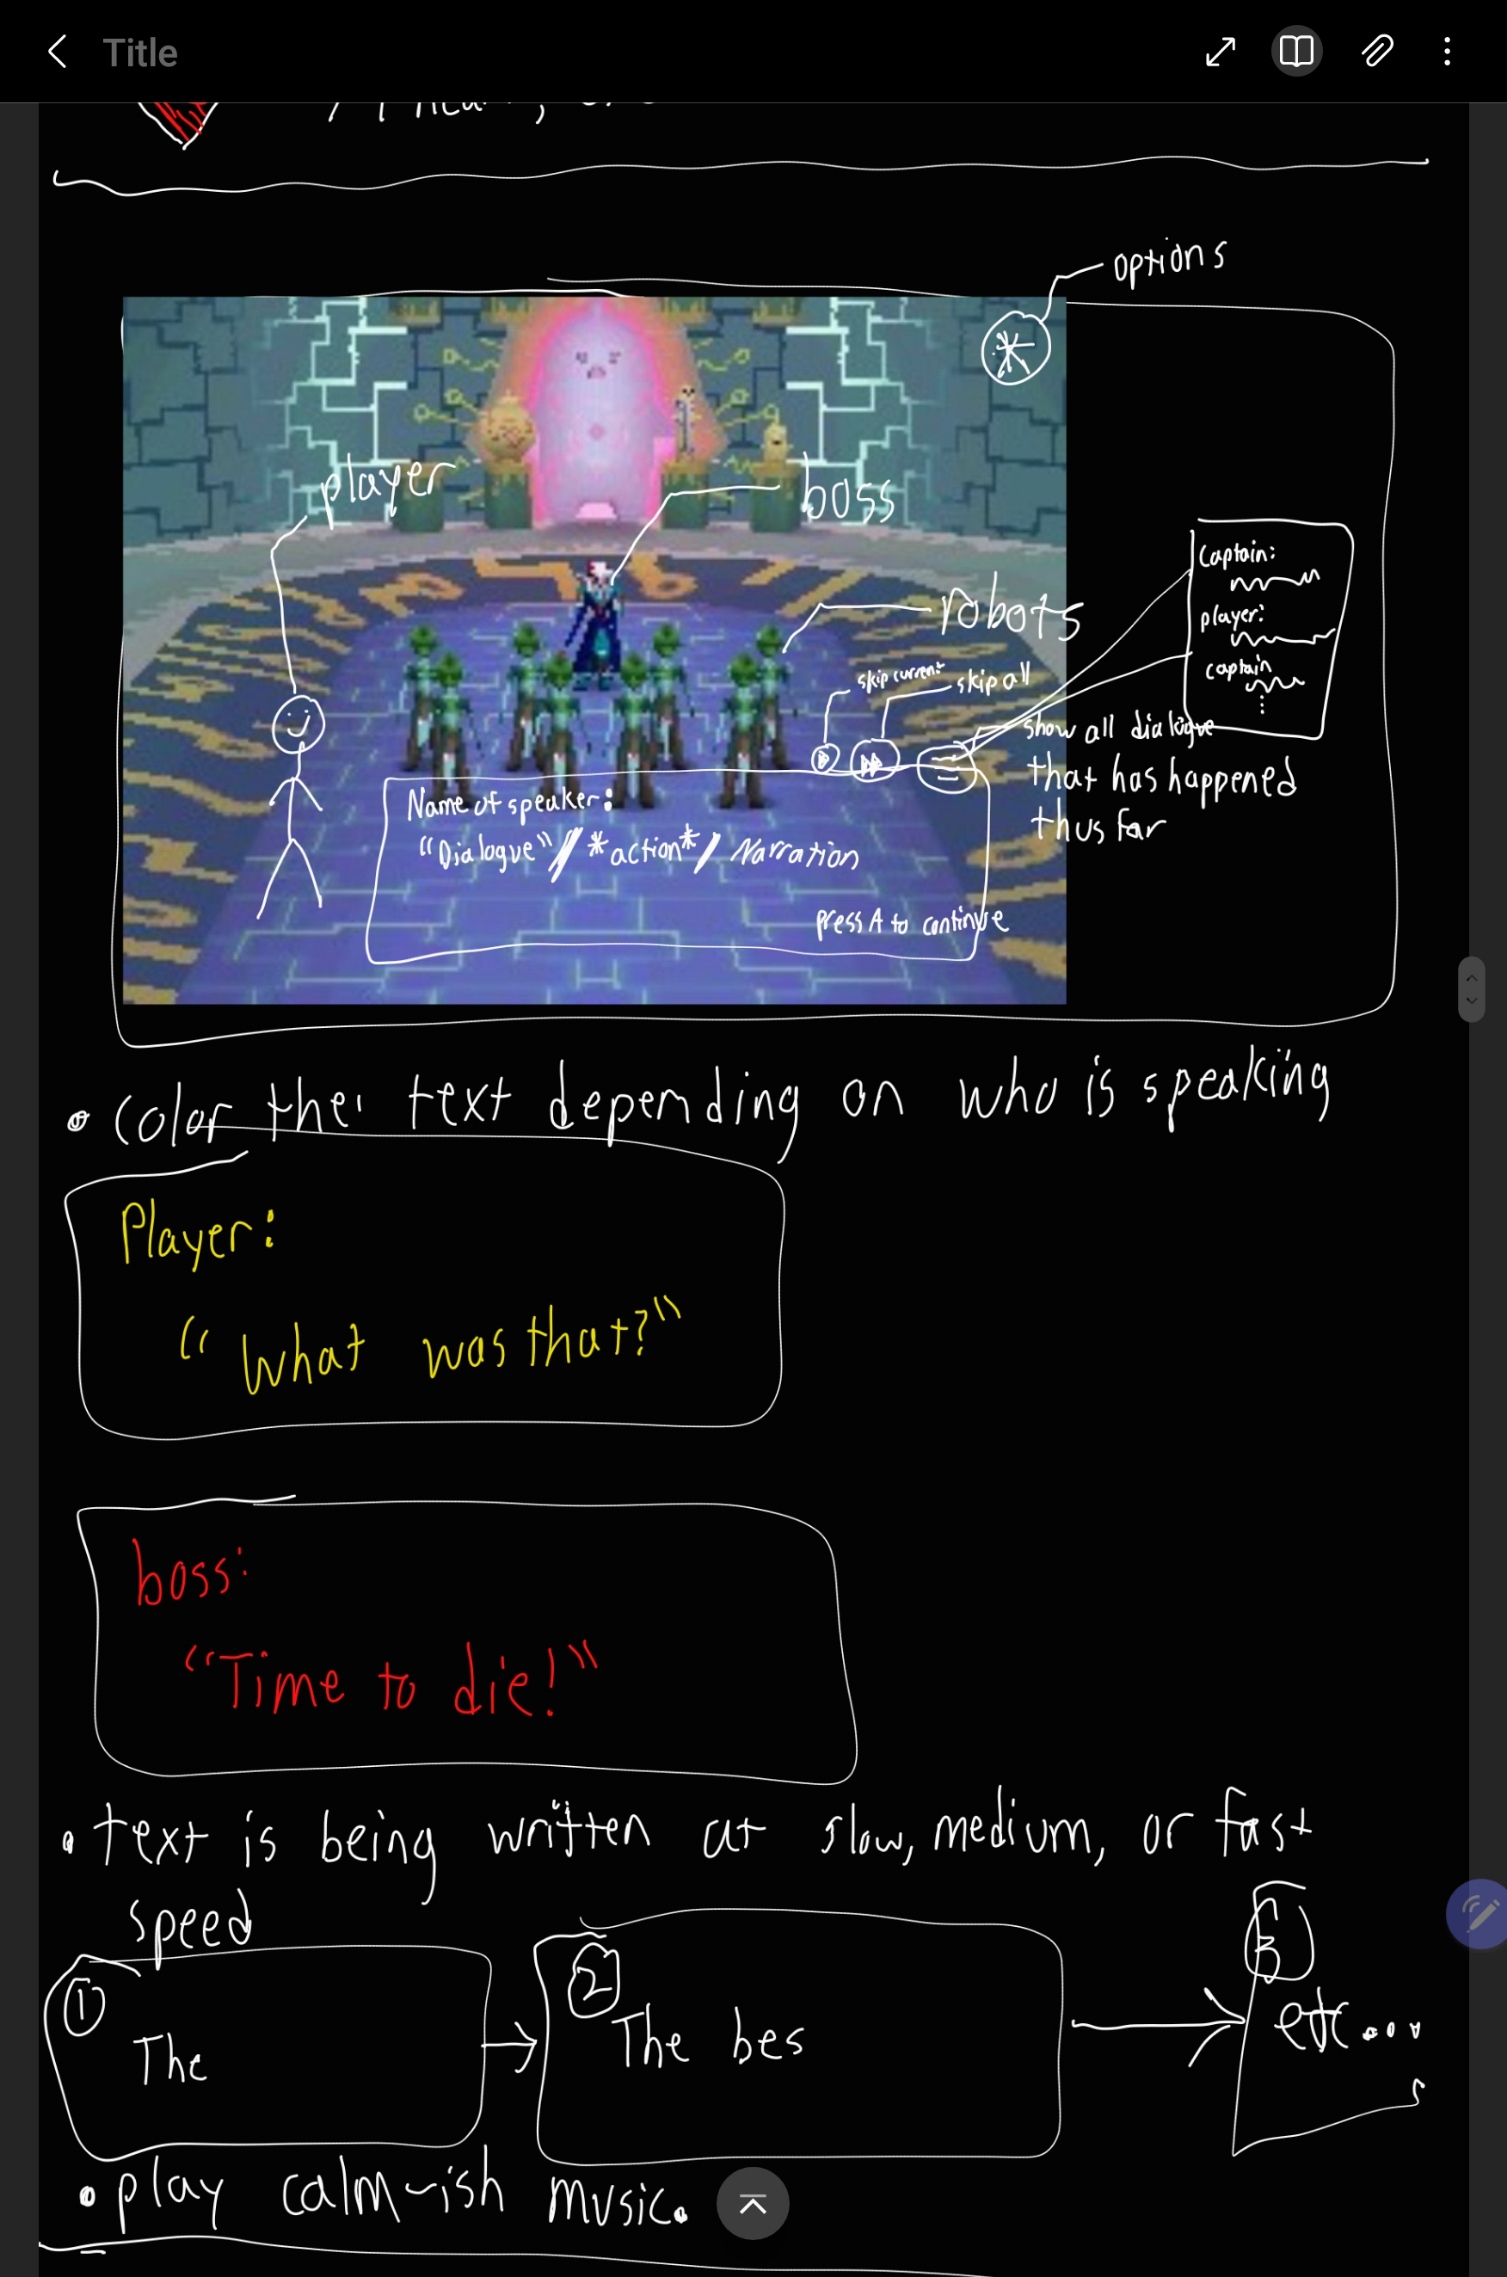 Title
options
player
boss
robots
skip current
skip all
Captain:
player:
captain
show all dialogue
that has happened
thus far
Name of speaker:
"Dialogue" / *action* / Narration
press A to continue
• color the text depending on who is speaking
Player:
"What was that?"
boss:
"Time to die!"
• text is being written at slow, medium, or fast
speed
1
The
2
The bes
3
etc...
• play calm-ish music.